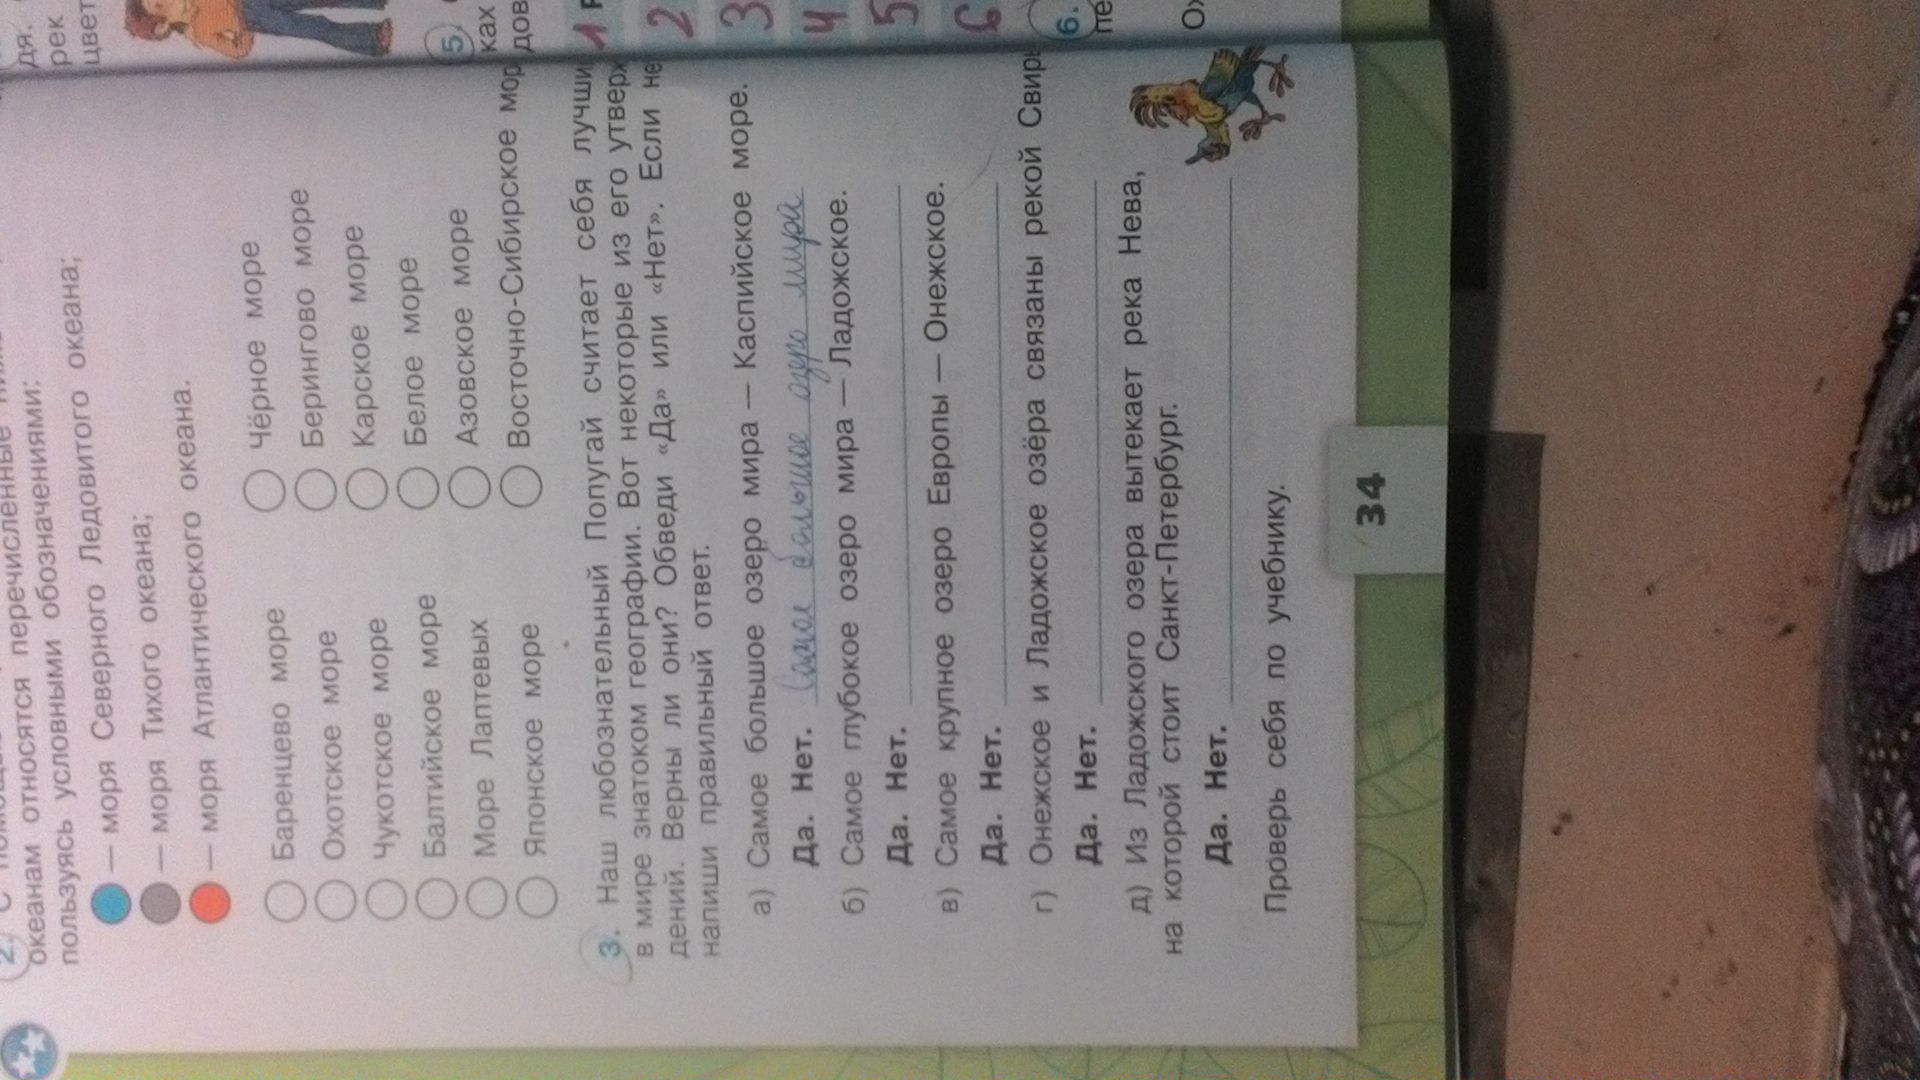 2. С
океанам относятся перечисленные
пользуясь условными обозначениями:
— моря Северного Ледовитого океана;
— моря Тихого океана;
— моря Атлантического океана.
Баренцево море
Охотское море
Чукотское море
Балтийское море
Море Лаптевых
Японское море
Чёрное море
Берингово море
Карское море
Белое море
Азовское море
Восточно-Сибирское мор
3. Наш любознательный Попугай считает себя лучши
в мире знатоком географии. Вот некоторые из его утверж
дений. Верны ли они? Обведи «Да» или «Нет». Если не
напиши правильный ответ.
а) Самое большое озеро мира — Каспийское море.
Да. Нет. Самое большое озеро мира
б) Самое глубокое озеро мира — Ладожское.
Да. Нет.
в) Самое крупное озеро Европы — Онежское.
Да. Нет.
г) Онежское и Ладожское озёра связаны рекой Свирь
Да. Нет.
д) Из Ладожского озера вытекает река Нева,
на которой стоит Санкт-Петербург.
Да. Нет.
Проверь себя по учебнику.
34
дя.
рек
цвет
5.
ках
дов
1
2
3
4
5
6
6.
пе